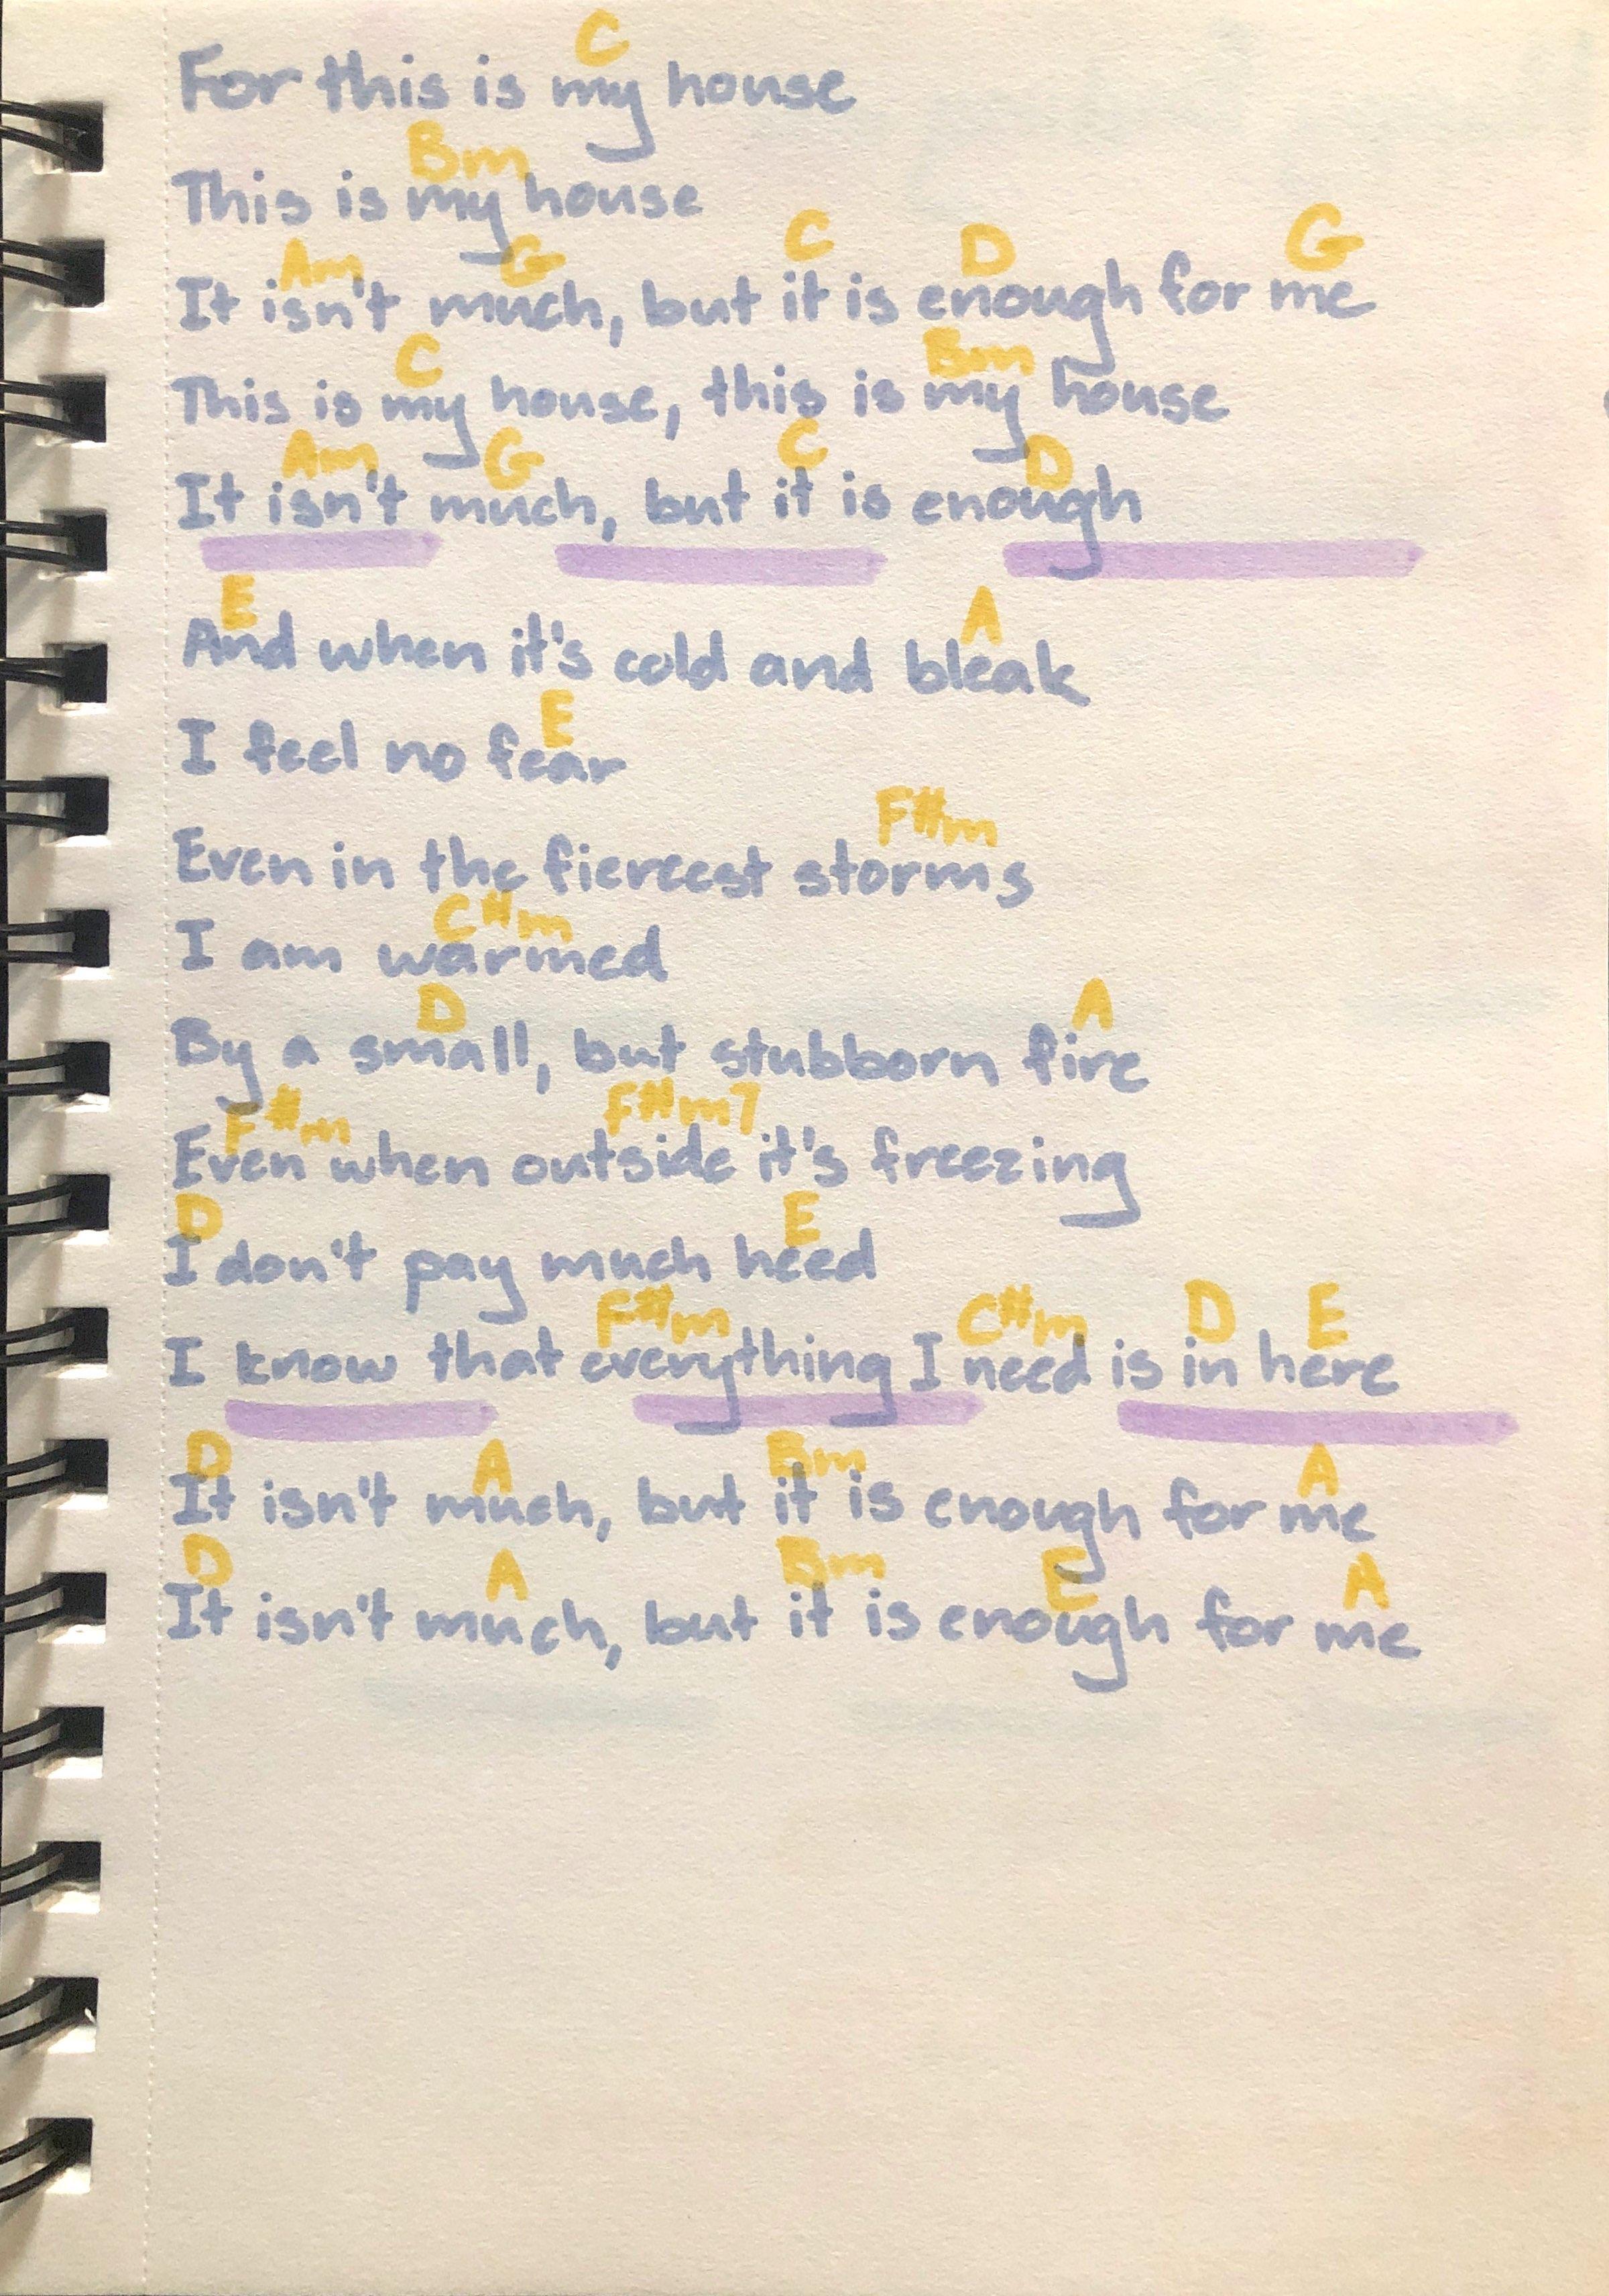 C
For this is my house
Bm
This is my house
Am G C D G
It isn't much, but it is enough for me
C Bm
This is my house, this is my house
Am G C D
It isn't much, but it is enough
E A
And when it's cold and bleak
E
I feel no fear
F#m
Even in the fiercest storms
C#m
I am warmed
D A
By a small, but stubborn fire
F#m F#m7
Even when outside it's freezing
D E
I don't pay much heed
F#m C#m D E
I know that everything I need is in here
D A Bm A
It isn't much, but it is enough for me
D A Bm E A
It isn't much, but it is enough for me